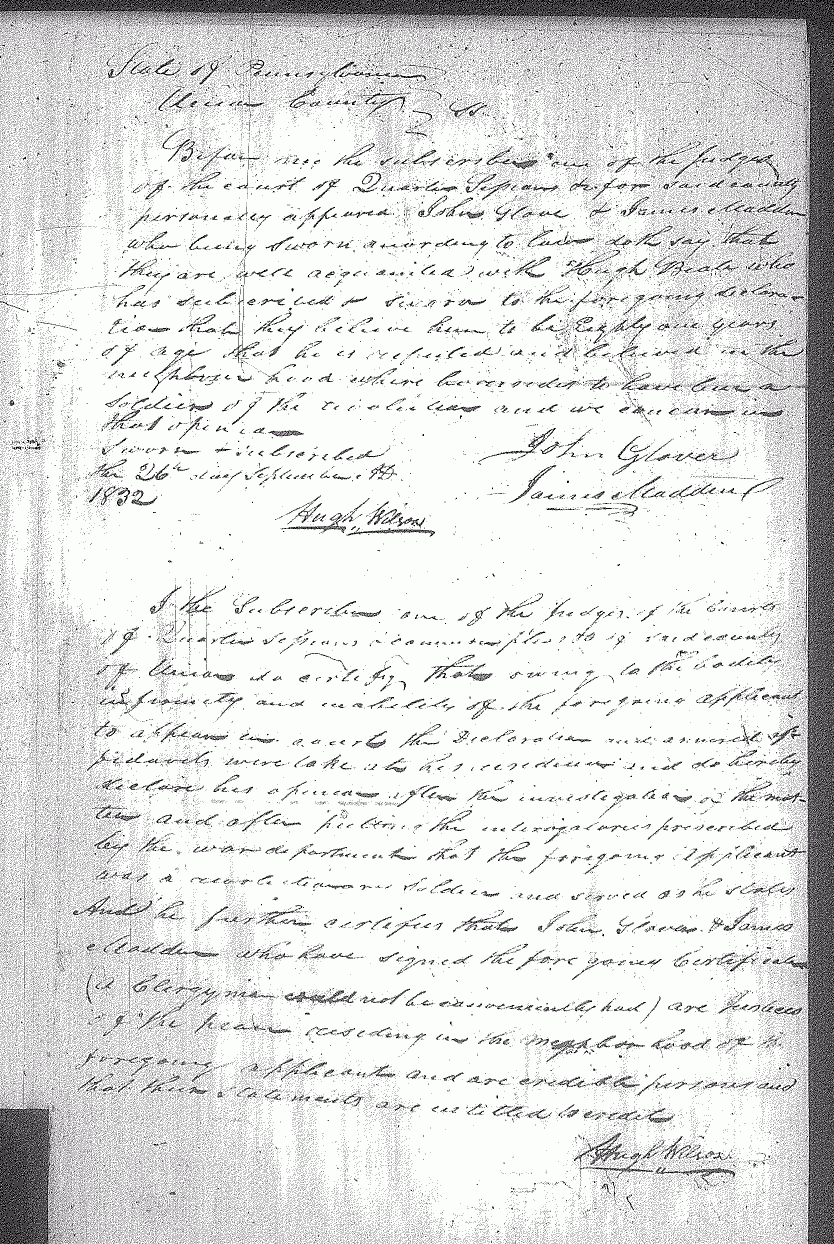 State of Pennsylvania
Union County } SS
Before me the subscriber one of the Judges
of the court of Quarter Sessions & for said county
personally appeared John Glover & James Madden
who being sworn according to law doth say that
they are well acquainted with Hugh Beatt who
has subscribed & sworn to the foregoing declara-
tion that they believe him to be Eighty one years
of age that he is reputed and believed in the
neighbour hood where he resides to have been a
soldier of the revolution and we concur in
that opinion
Sworn & subscribed
the 26th day September AD
1832
John Glover
James Madden
Hugh Wilson
I the Subscriber one of the Judges of the Courts
of Quarter Sessions & common pleas of said county
of Union do certify that owing to the bodily
infirmity and inability of the foregoing applicant
to appear in court the Declaration and annexed af-
fidavits were take at his residence and do hereby
declare his opinion after the investigation of the mat-
ter and after putting the interogatories prescribed
by the war department that the foregoing applicant
was a revolutionary soldier and served as he states
And he further certifies that John Glover & James
Madden who have signed the foregoing Certificate
(a Clergyman could not be conveniently had) are Justices
of the peace residing in the neighbor hood of the
foregoing applicant and are credible persons and
that their statements are intitled to credit
Hugh Wilson